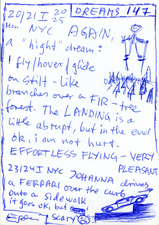 20/21 I 2025 DREAMS 147
NYC AGAIN.
A "hight" dream:
I fly/hover/glide
on stilt-like
branches over a FIR-tree
forest. The LANDING is a
little abrupt, but in the end
ok, i am not hurt.
EFFORTLESS FLYING - VERY
PLEASANT
23/24 I NYC JOHANNA drives
a FERRARI over the curb
onto a sidewalk
it goes ok, but
scary